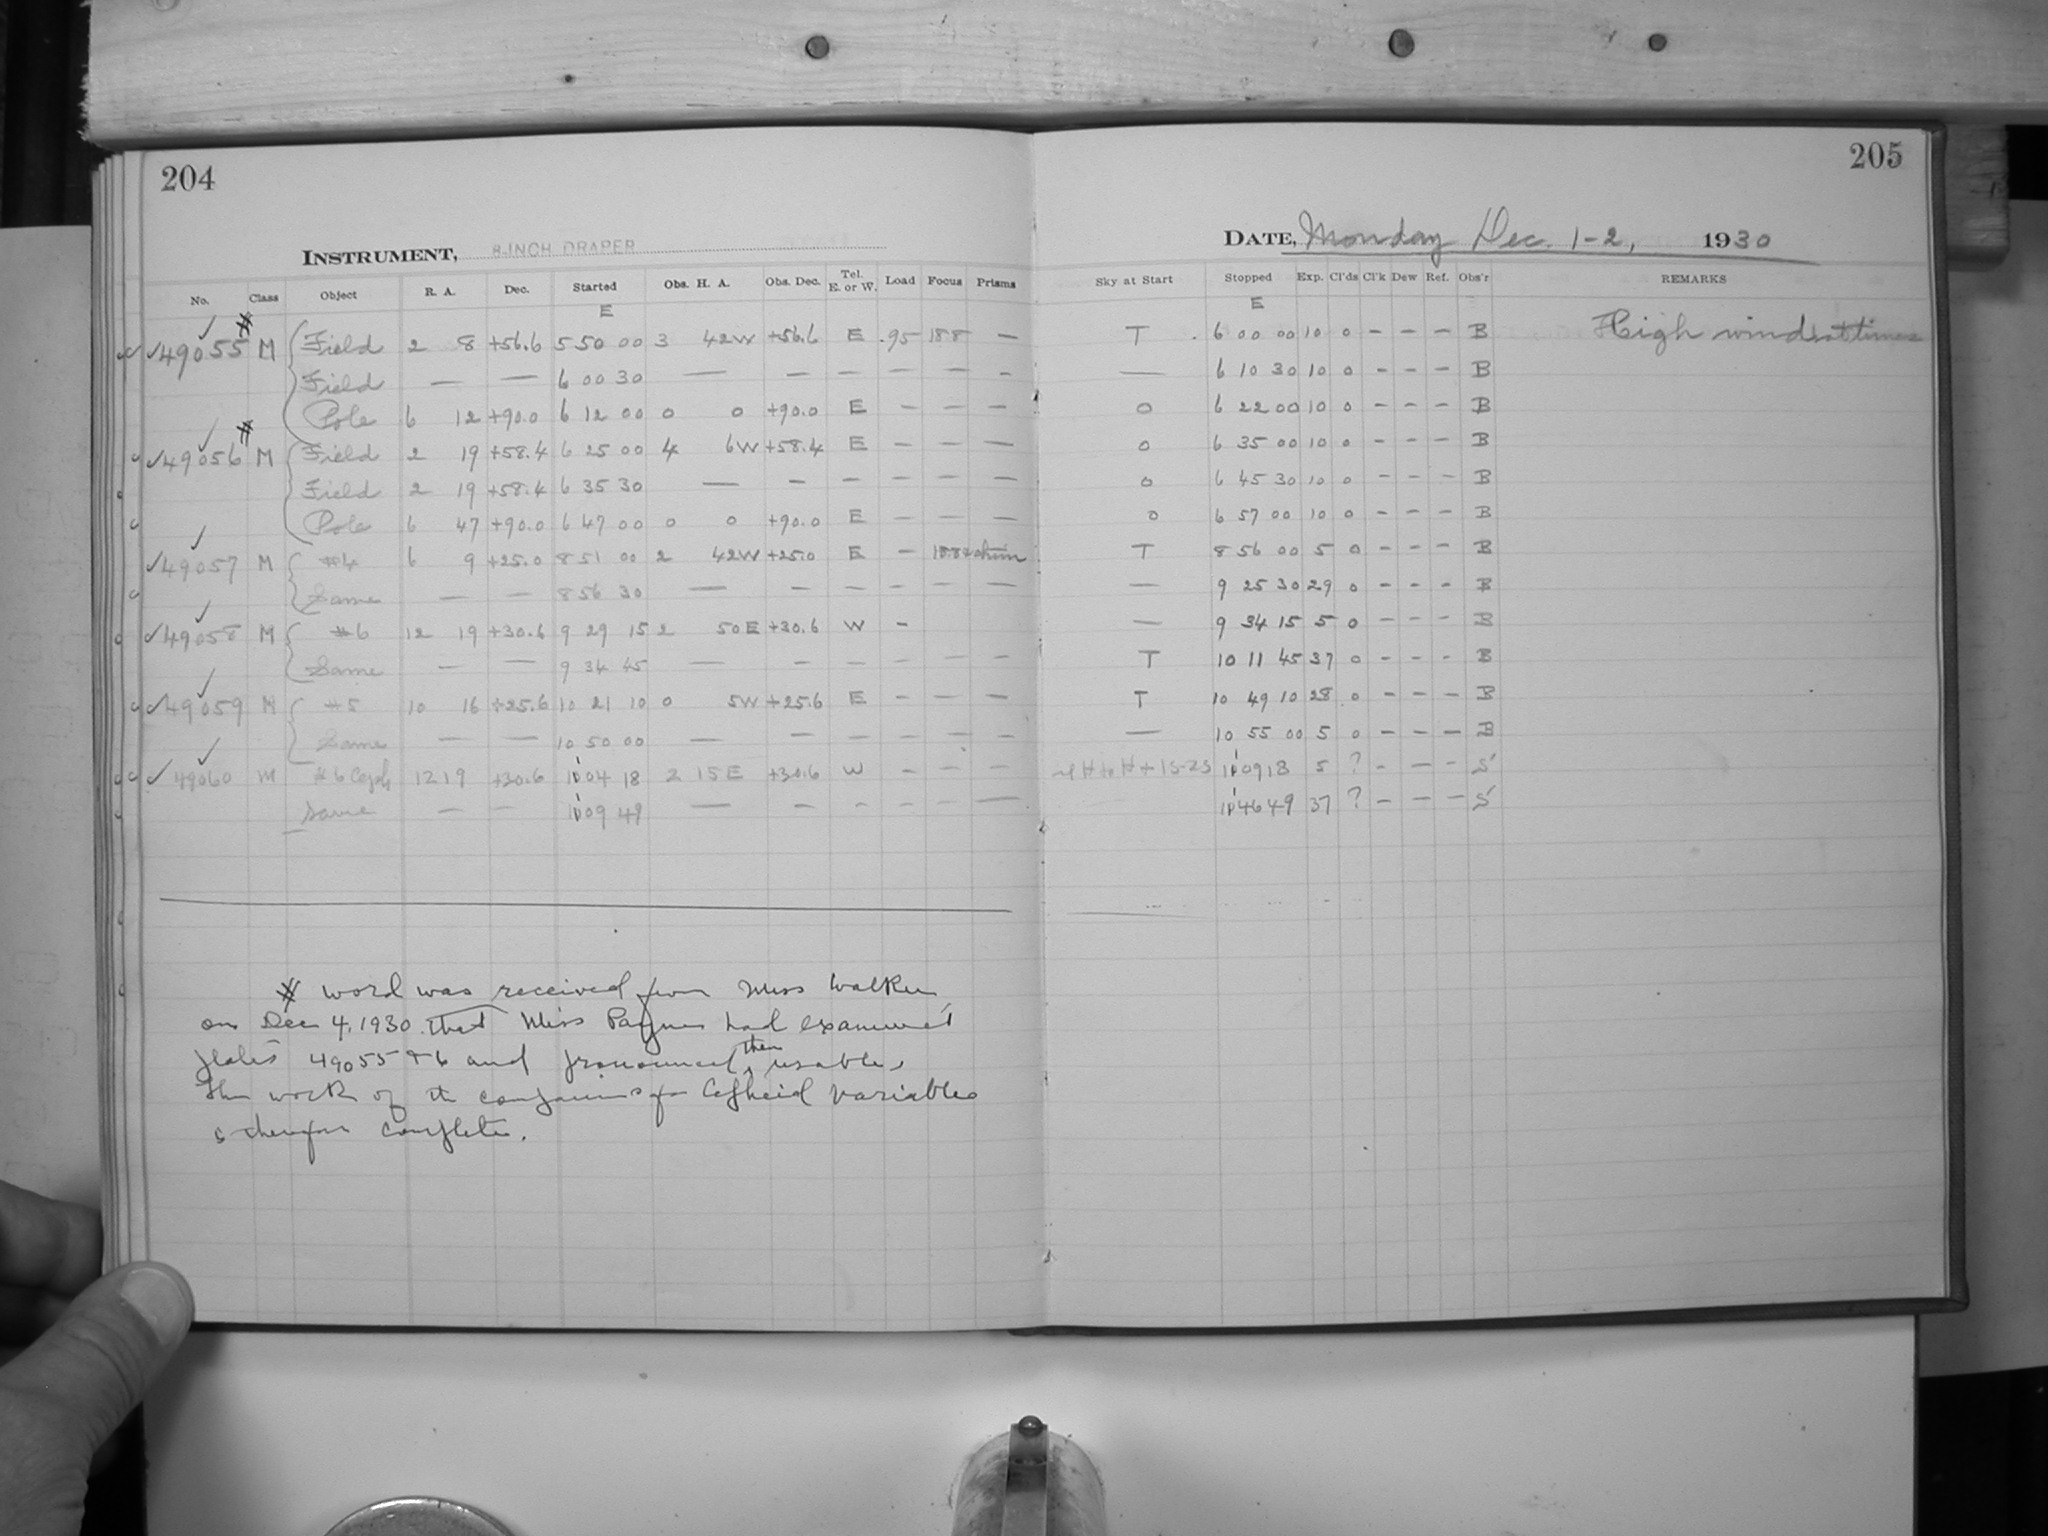 204
INSTRUMENT, 8-INCH DRAPER
No. Class Object R. A. Dec. Started Obs. H. A. Obs. Dec. Tel. E. or W. Load Focus Prisms
E
✓49055 # M Field 2 8 +56.6 5 50 00 3 42W +56.6 E .95 188 —
Field — — 6 00 30 — — — — — -
Pole 6 12 +90.0 6 12 00 0 0 +90.0 E — — —
✓49056 # M Field 2 19 +58.4 6 25 00 4 6W +58.4 E — — —
Field 2 19 +58.4 6 35 30 — — — — — —
Pole 6 47 +90.0 6 47 00 0 0 +90.0 E — — —
✓49057 M #4 6 9 +25.0 8 51 00 2 42W +25.0 E —
Same — — 8 56 30 — — — — — —
✓49058 M #6 12 19 +30.6 9 29 15 2 50E +30.6 W —
Same — — 9 34 45 — — — — — —
✓49059 M #5 10 16 +25.6 10 21 10 0 5W +25.6 E — — —
Same — — 10 50 00 — — — — — —
✓ 49060 M #6 12 19 +30.6 04 18 2 15E +30.6 W — — —
Same — — 09 49 — — — — — —
# word was received from Miss Walker
on Dec 4, 1930 that Miss Payne had examined
plates 49055 + 6 and pronounced them usable.
The work of the comparisons for Cepheid Variables
is therefore complete.
205
DATE, Monday Dec. 1-2, 1930
Sky at Start Stopped Exp. Cl'ds Cl'k Dew Ref. Obs'r REMARKS
E
T 6 00 00 10 0 — — — B High wind at times
— 6 10 30 10 0 — — — B
0 6 22 00 10 0 — — — B
0 6 35 00 10 0 — — — B
0 6 45 30 10 0 — — — B
0 6 57 00 10 0 — — — B
T 8 56 00 5 0 — — — B
— 9 25 30 29 0 — — — B
— 9 34 15 5 0 — — — B
T 10 11 45 37 0 — — — B
T 10 49 10 28 0 — — — B
— 10 55 00 5 0 — — — B
09 18 5 ? — — — S
46 49 37 ? — — — S